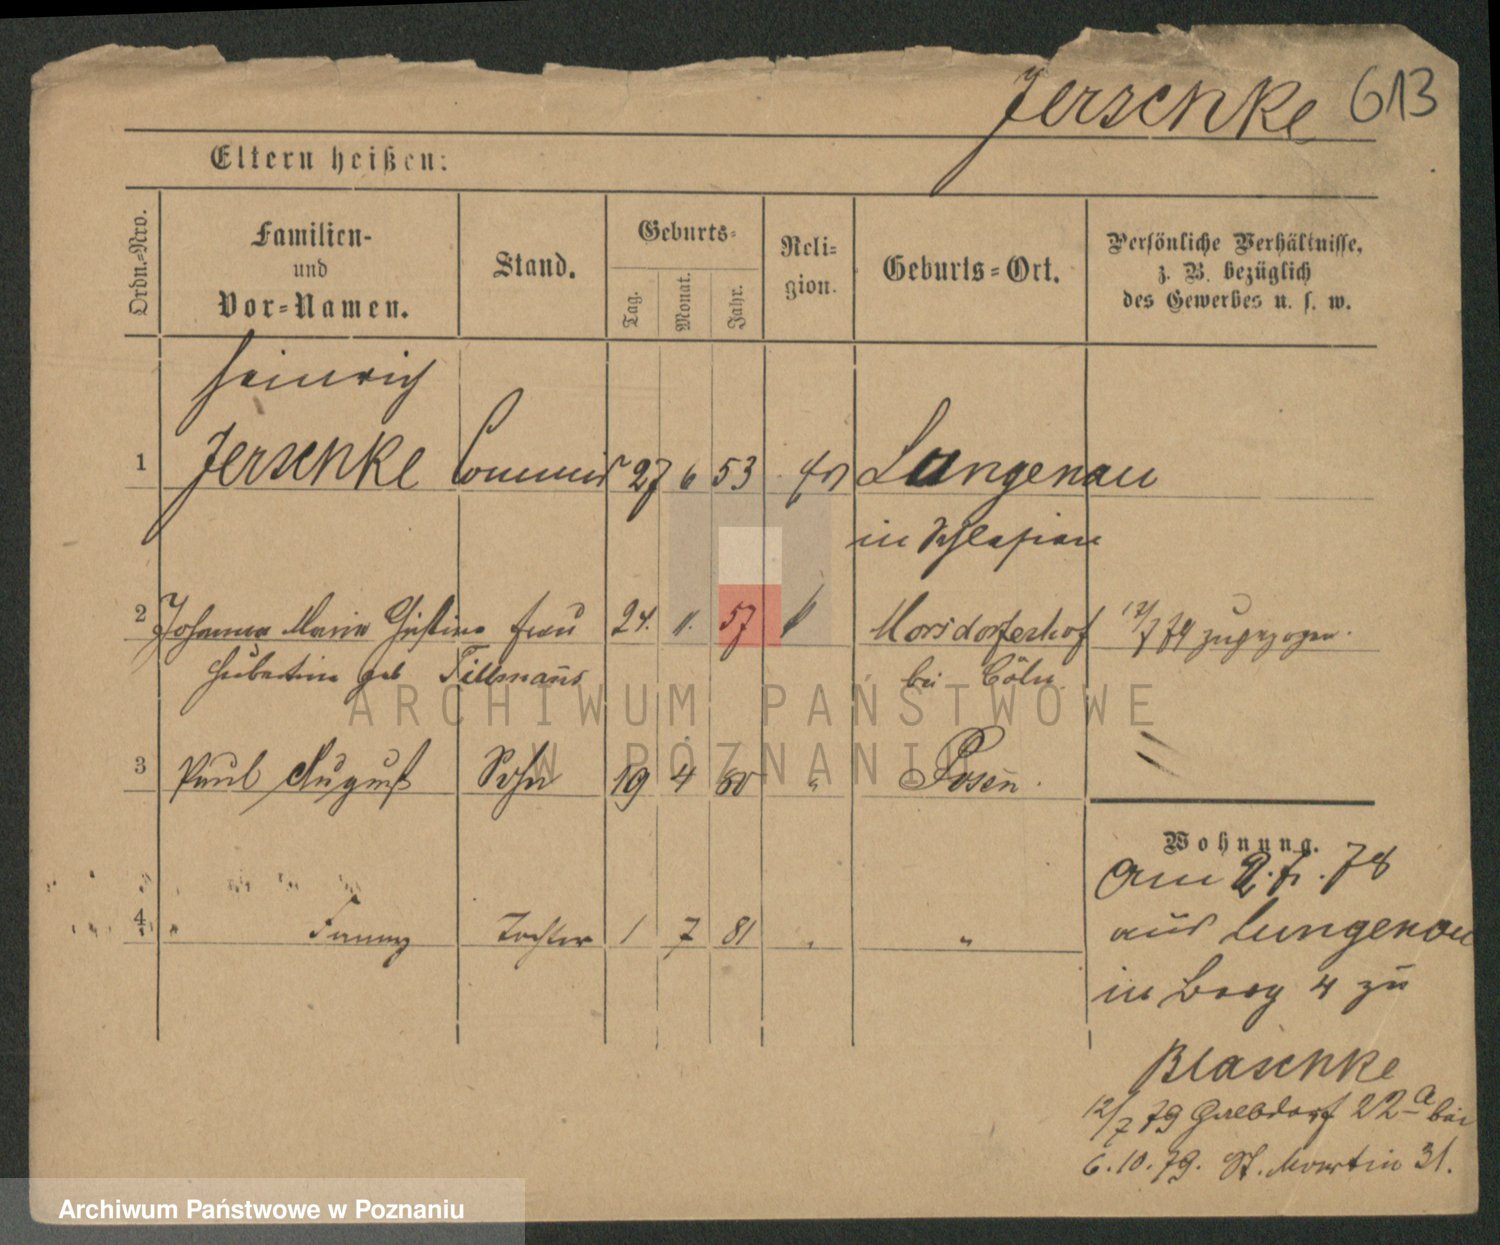 Jerschke 613
Eltern heißen:
Ordn.-Nro.
Familien-
und
Vor-Namen.
Stand.
Geburts-
Tag.
Monat.
Jahr.
Reli-
gion.
Geburts-Ort.
Persönliche Verhältnisse,
z. B. bezüglich
des Gewerbes u. s. w.
Heinrich
1 Jerschke Commis 27 6 53 Langenau
in Schlesien
2 Johanna Maria Christine Frau 24. 11. 57 Morsdorferhof 12/7 79 zugezogen.
Hubertine geb Tillmanns bei Cöln
3 Paul August Sohn 19 4 80 " Posen.
4 " Fanny Tochter 1 7 81 " "
Wohnung.
Am 2. . 78
aus Langenau
in 4 zu
Blaschke
12/7 79 22a bei
6.10.79. St. Martin 31.
ARCHIWUM PAŃSTWOWE
W POZNANIU
Archiwum Państwowe w Poznaniu